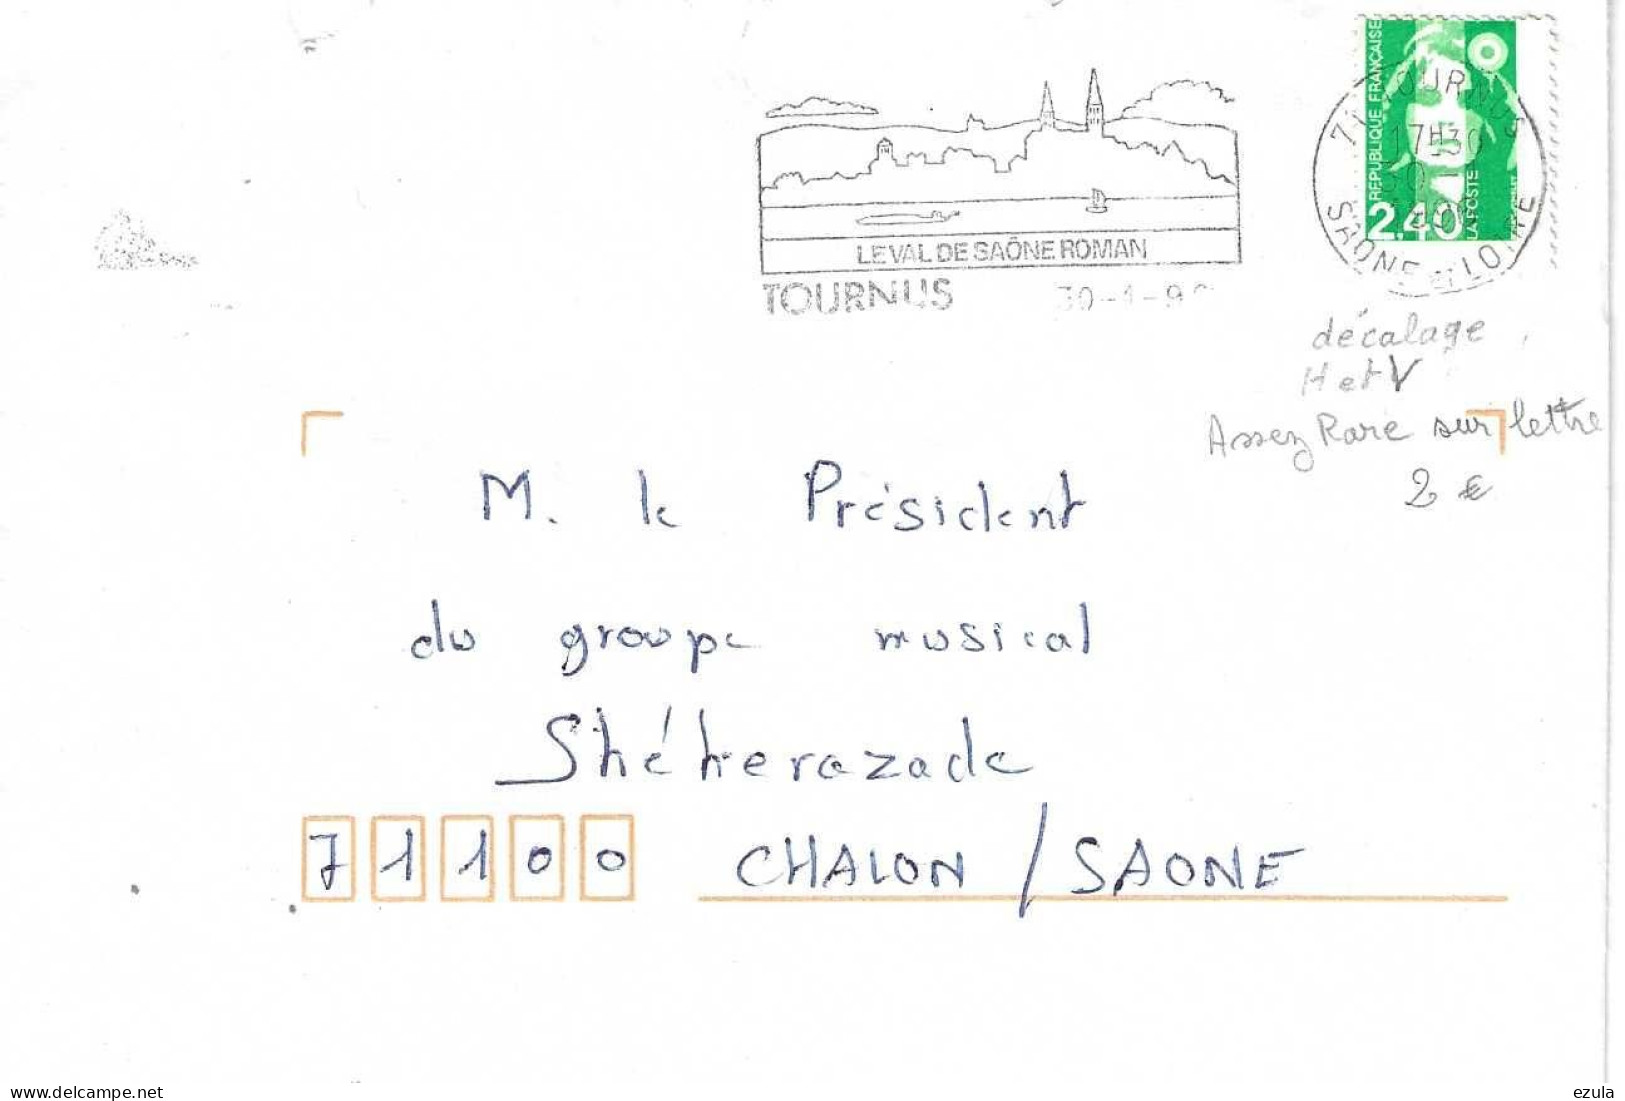 RÉPUBLIQUE FRANÇAISE
2,40
LA POSTE
TOURNUS
17H30
SAÔNE ET LOIRE
LE VAL DE SAÔNE ROMAN
TOURNUS
30-1-9
décalage
H et V
Assez Rare sur lettre
2 €
M. le Président
du groupe musical
Shéherazade
71100 CHALON / SAONE
delcampe.net
ezula